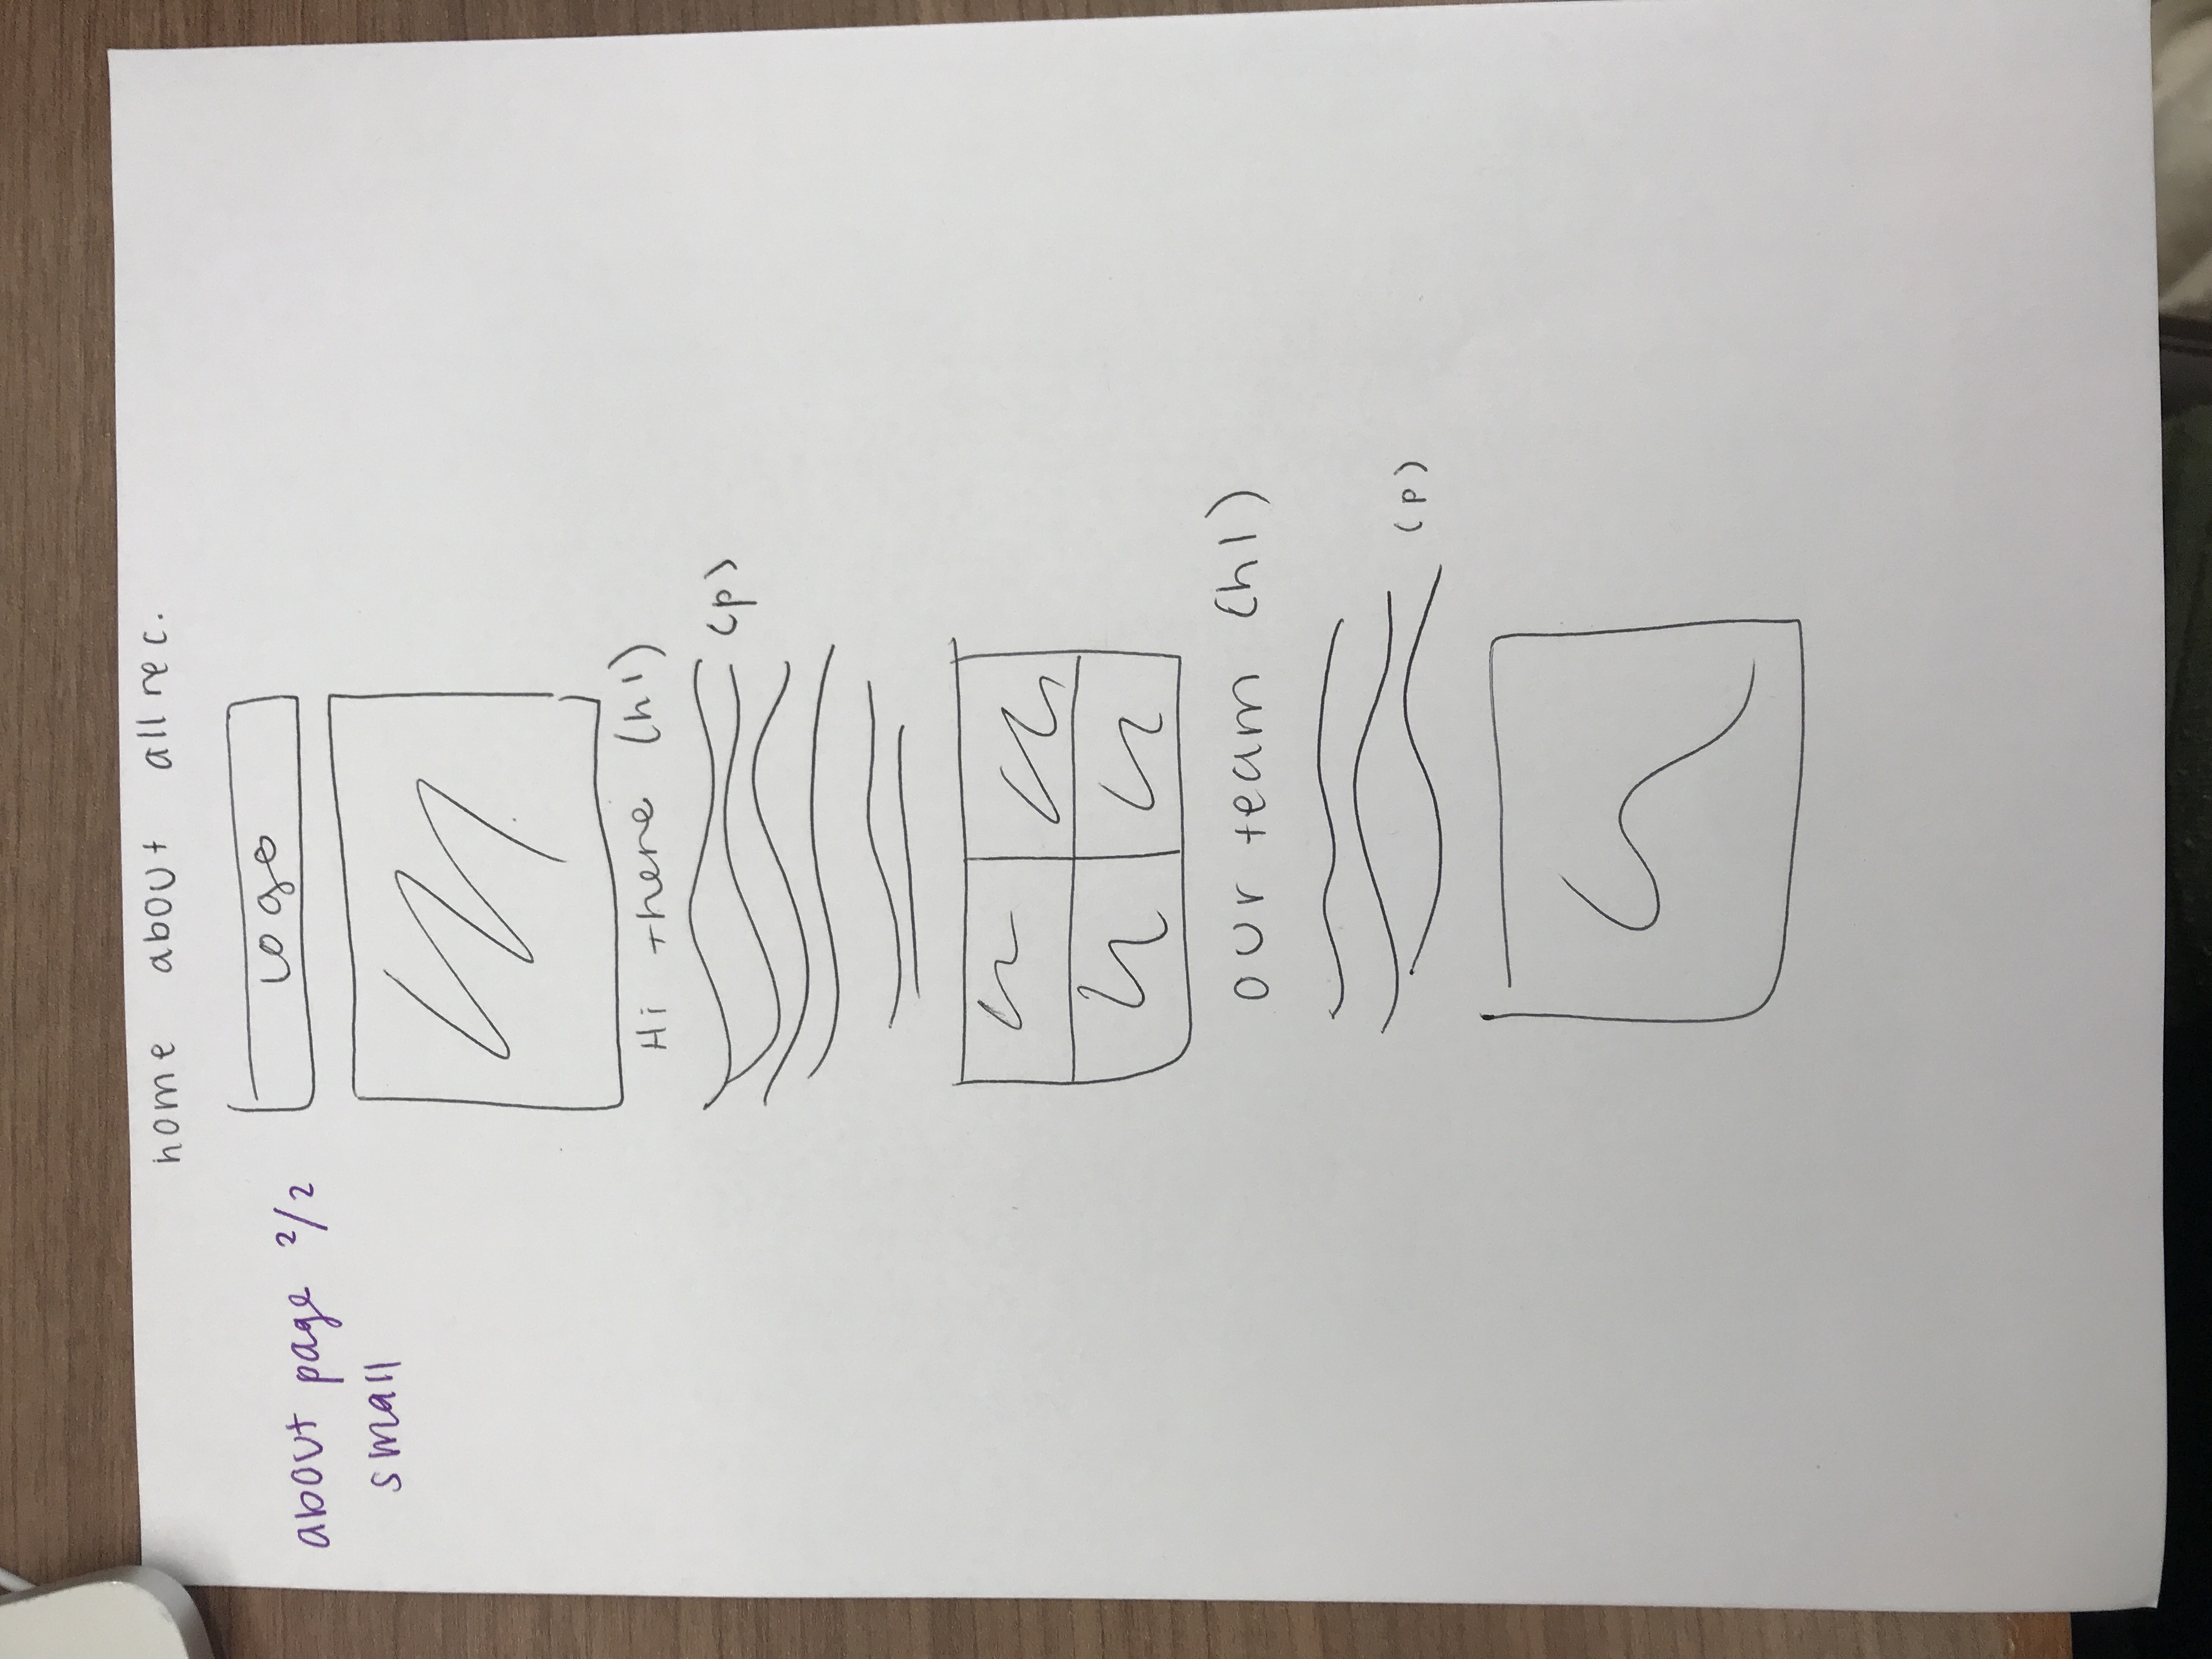 home about all rec.
logo
about page 2/2
small
Hi there (h1)
(p)
our team (h1)
(p)